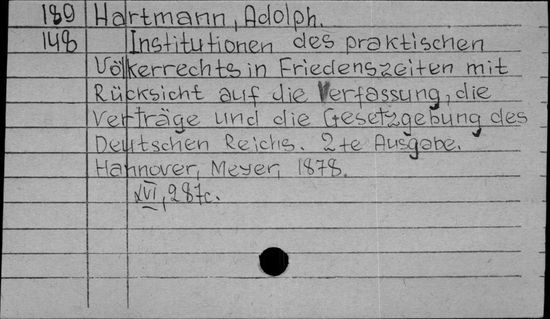 189 Hartmann, Adolph.
148 Institutionen des praktischen
Völkerrechts in Friedenszeiten mit
Rücksicht auf die Verfassung, die
Verträge und die Gesetzgebung des
Deutschen Reichs. 2te Ausgabe.
Hannover, Meyer, 1878.
XVI, 287c.